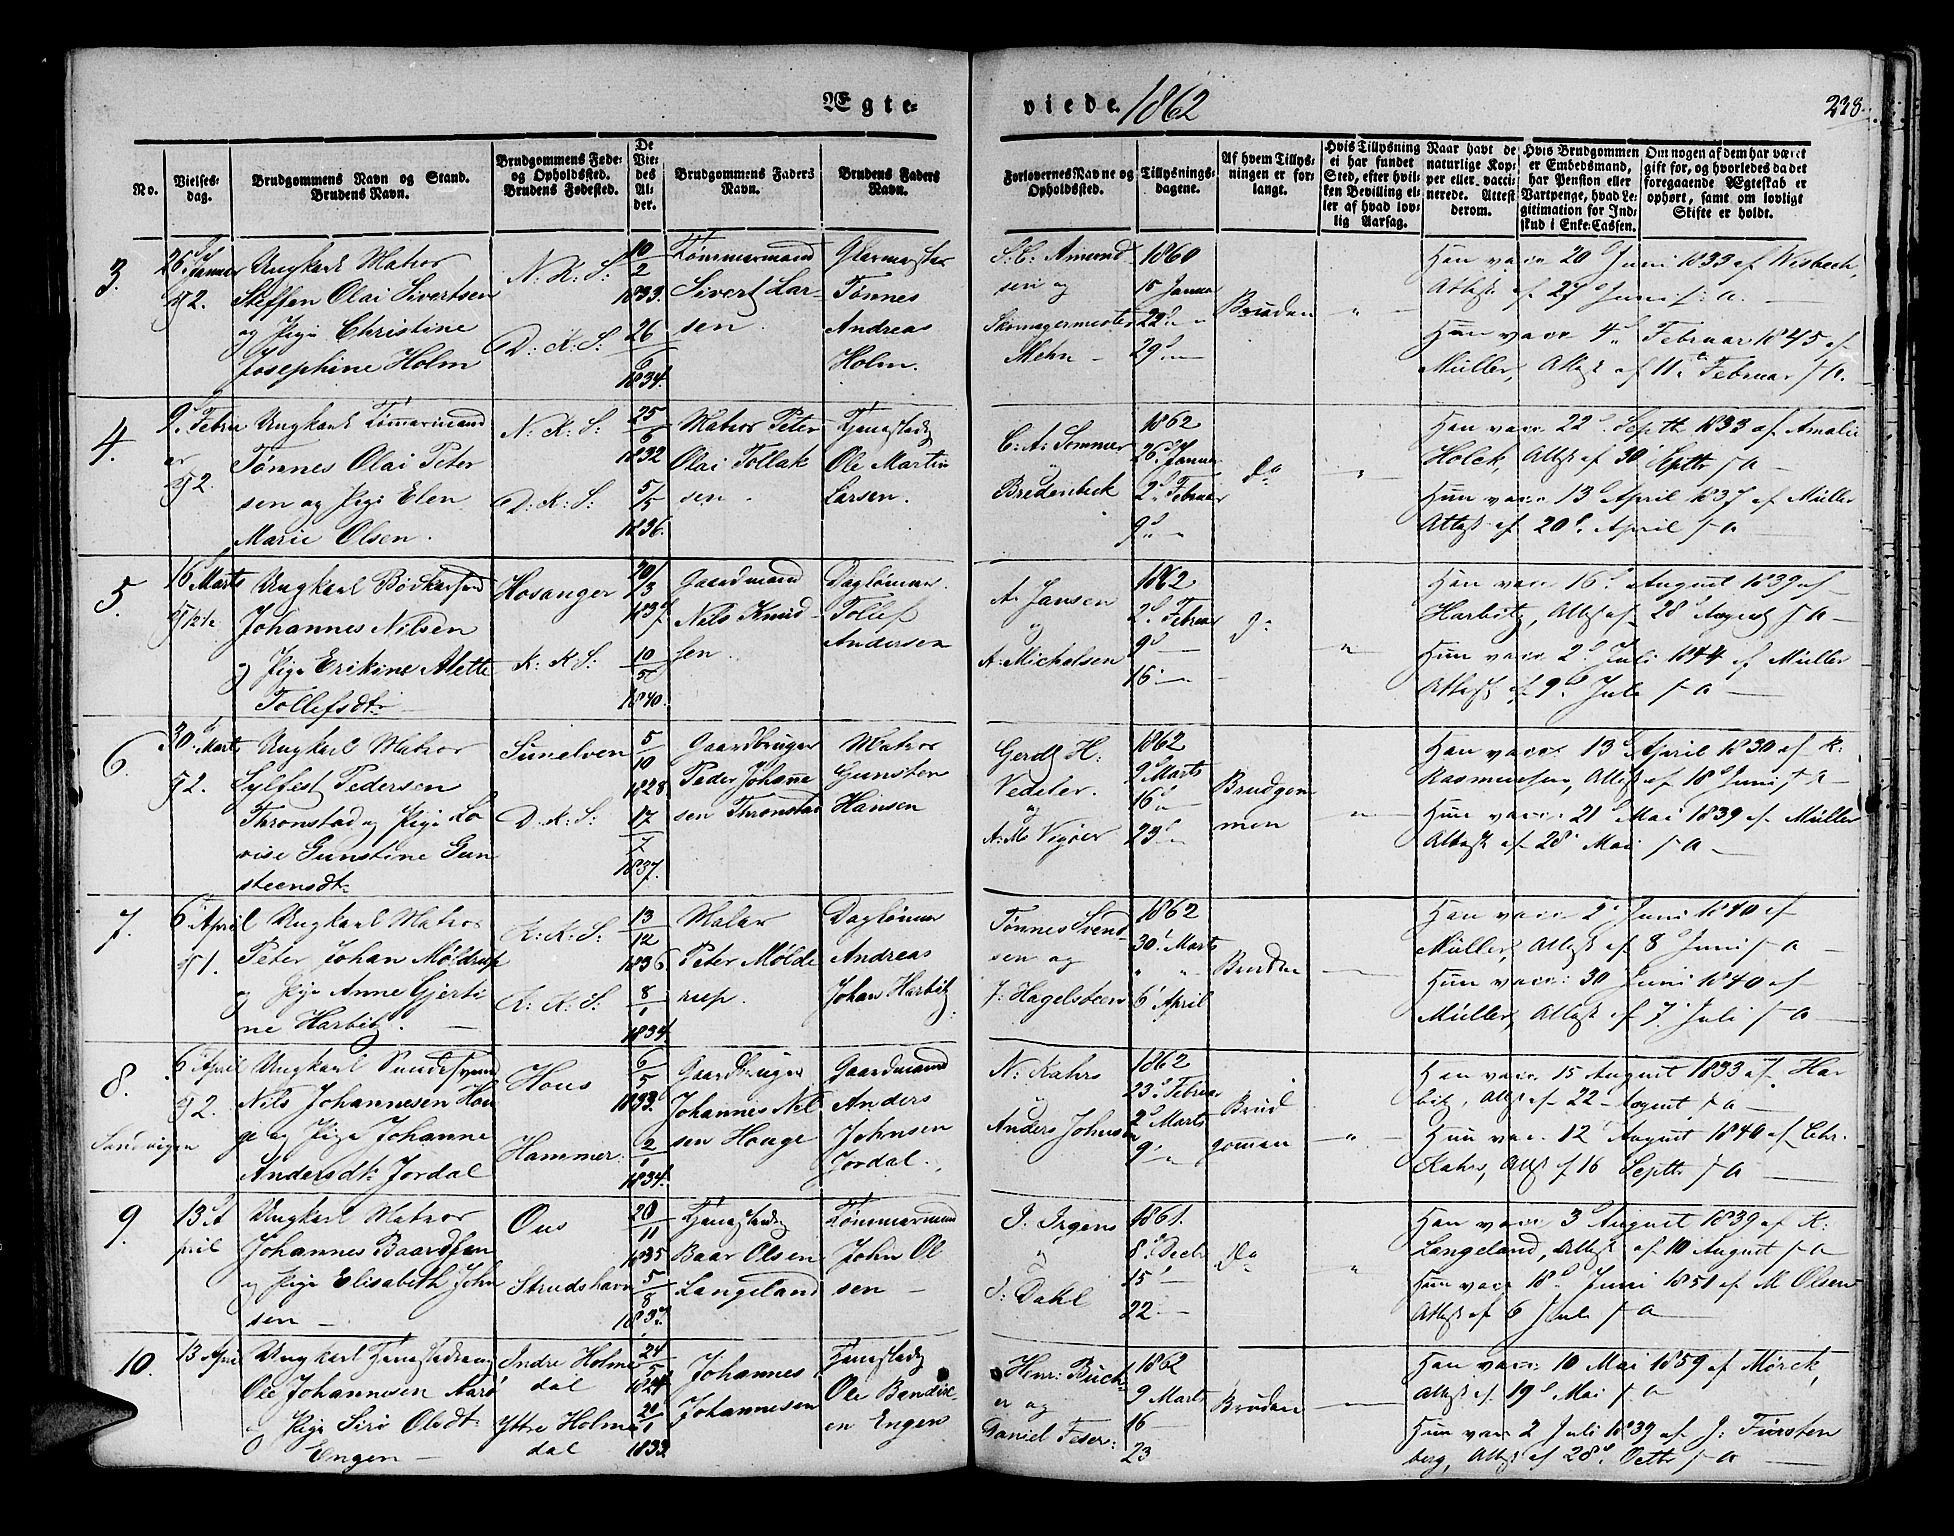 Ægte-
viede 1862
228.
No.
Vielses-
dag.
Brudgommens Navn og Stand.
Brudens Navn.
Brudgommens Føde-
og Opholdssted.
Brudens Fødested.
De
Vie-
des
Al-
der.
Brudgommens Faders
Navn.
Brudens Faders
Navn.
Forlovernes Navne og
Opholdssted.
Tillysnings-
dagene.
Af hvem Tillys-
ningen er for-
langt.
Hvis Tillysning
ei har fundet
Sted, efter hvil-
ken Bevilling el-
ler af hvad lov-
lig Aarsag.
Naar havt de
naturlige Kop-
per eller vacci-
nerede. Attest
derom.
Hvis Brudgommen
er Embedsmand,
har Pension eller
Vartpenge, hvad Le-
gitimation for Ind-
skud i Enke-Cassen.
Om nogen af dem har været
gift før, og hvorledes da det
foregaaende Ægteskab er
ophørt, samt om lovligt
Skifte er holdt.
3.
26 Januar
Ungkarl Matros
Steffen Olai Sivertsen
og Pige Christine
Josephine Holm
N: K: S:
D: K: S:
10/2 1833.
26/6 1834.
Tømmermand
Sivert Lar-
sen.
Glarmester
Tønnes
Andreas
Holm.
S. C. Amund
sen og
Skomagermester
Mehn
1860
15 Januar
22 "
29 "
Bruden
"
Han vacc 20 Juni 1833 af Wisbech,
Attest af 27 Juni s. a.
Hun vacc 4 Februar 1845 af
Müller, Attest af 11 Februar s a.
4.
9 Febru
ar
Ungkarl Tømmermand
Tønnes Olai Peter
sen og Pige Elen
Marie Olsen.
N: K: S:
D: K: S:
25/6 1832
5/5 1836.
Matros Peter
Olai Tollak
sen.
Tjenestedr
Ole Martin
Larsen.
C: A: Sommer
Bredenbeck
1862
26 Januar
2 Februar
9 "
Do
"
Han vacc 22 Septbr 1833 af Amalie
Holck, Attest af 30 Septbr s a
Hun vacc 13 April 1837 af Müller
Attest af 20 April s a
5.
16 Marts
Ungkarl Bødkersvend
Johannes Nilsen
og Pige Erikine Alette
Tollefsdtr
Hosanger
K: K: S:
20/3 1837
10/5 1840.
Gaardmand
Nils Knud
sen.
Dagleiner
Tollef
Andersen
A. Jansen
og
A. Michelsen
1862
2 Februar
9
16
Do
"
Han vacc 16 August 1839 af
Harbitz, Attest af 28 August s a
Hun vacc 2 Juli 1844 af Müller
Attest af 9 Juli s a
6.
30 Marts
Ungkarl Matros
Sylfest Pedersen
Thronstad og Pige Lo
vise Gunstine Gun
steensdtr
Sunelven
D: K: S:
5/10 1828
17/7 1837.
Gaardbruger
Peder Johanne
sen Thronstad
Matros
Gunsten
Hansen
Gerdt H:
Vedeler.
og
A: M: Vigøer
1862
9 Marts
16
23
Brudgom
men
"
Han vacc 13 April 1830 af R:
Rasmussen, Attest af 18 Juni s a
Hun vacc 21 Mai 1839 af Müller
Attest af 28 Mai s a
7.
6 April
Ungkarl Matros
Peter Johan Møldrup
og Pige Anne Gjerti
ne Harbitz.
K: K: S:
K: K: S:
13/12 1836
8/1 1834.
Maler
Peter Møld
rup.
Dagleiner
Andreas
Johan Harbitz
Tønnes Svend
sen og
J: Hagelsteen
1862
30 Marts
" "
6 April
Bruden
Han vacc 2 Juni 1840 af
Müller, Attest af 8 Juni s a
Hun vacc 30 Juni 1840 af
Müller, Attest af 7 Juli s a
8.
Sandvigen
6 April
Ungkarl Smedesvend
Nils Johannesen Hau
ge og Pige Johanne
Andersdtr Jordal
Hous
Hammer
6/5 1833.
2/1 1834.
Gaardbruger
Johannes Nil
sen Houge
Gaardmand
Anders
Johnsen
Jordal.
N: Kahrs
og
Anders Johnsen
1862
23 Februar
2 Marts
9
Brud
gommen
"
Han vacc 15 August 1833 af Har
bitz, Attest af 22 August s a
Hun vacc 12 August 1840 af Chr.
Kahrs, Attest af 16 Septbr s a
9.
13 A
pril
Ungkarl Matros
Johannes Baardsen
og Pige Elisabeth John
sen
Ous
Strudshavn
20/11 1835
5/8
Tjenestedr
Baar Olsen
Langeland
Tømmermand
John Ol
sen
J. Irgens
og
J. Dahl
1861.
8 Decbr
15
22
Do
"
Han vacc 3 August 1839 af K:
Langeland, Attest af 10 August s a
Hun vacc 18 Juni 1851 af M Olsen
Attest af 6 Juli s a
10.
13 April
Ungkarl Tjenestedreng
Ole Johannesen Aarø
og Pige Siro Olsdtr
Engen
Indre Holme
dal
Yttre Holme
dal
24/5 1824
20/1 1833.
Johannes
Johannesen
Tjenestedr
Ole Bendix
en Engen
Henr: Buch
er og
Daniel Feser:
1862
9 Marts
16
23
Bruden
Han vacc 10 Mai 1859 af Mørck,
Attest af 19 Mai s a
Hun vacc 2 Juli 1839 af J: Fürsten
berg, Attest af 28 Octbr s a